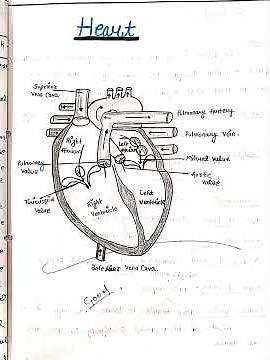 Heart
Superior
Vena Cava.
Pulmonary Artery
Right
Atrium
Left
Atrium
Pulmonary Vein.
Pulmonary
Valve
Mitral Valve
Aortic
Valve
Tricuspid
Valve
Right
Ventricle
Left
Ventricle
Vena Cava.
Good